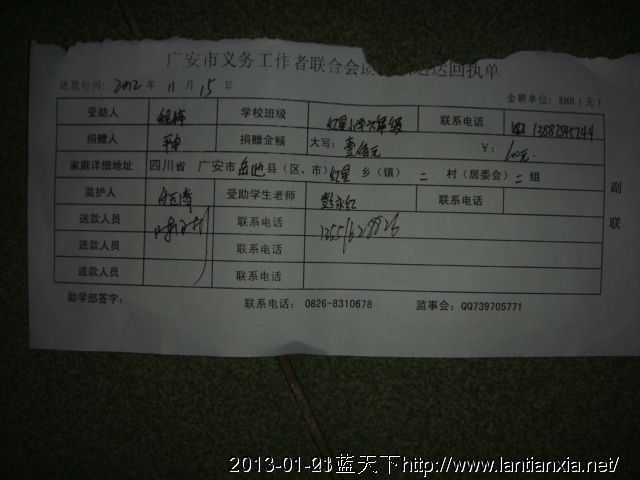 广安市义务工作者联合会 送回执单
送款时间：2012 年 11 月 15 日 金额单位：RMB（元）
受助人 学校班级 红星小学六年级 联系电话
捐赠人 捐赠金额 大写：壹佰元 ￥：100元.
家庭详细地址 四川省 广安市 岳池 县（区、市） 红星 乡（镇） 二 村（居委会） 二 组
监护人 受助学生老师 彭永红 联系电话
送款人员 联系电话
送款人员 联系电话
送款人员 联系电话
助学部签字： 联系电话：0826-8310678 监事会：QQ739705771
副联
蓝天下http://www.lantianxia.net/